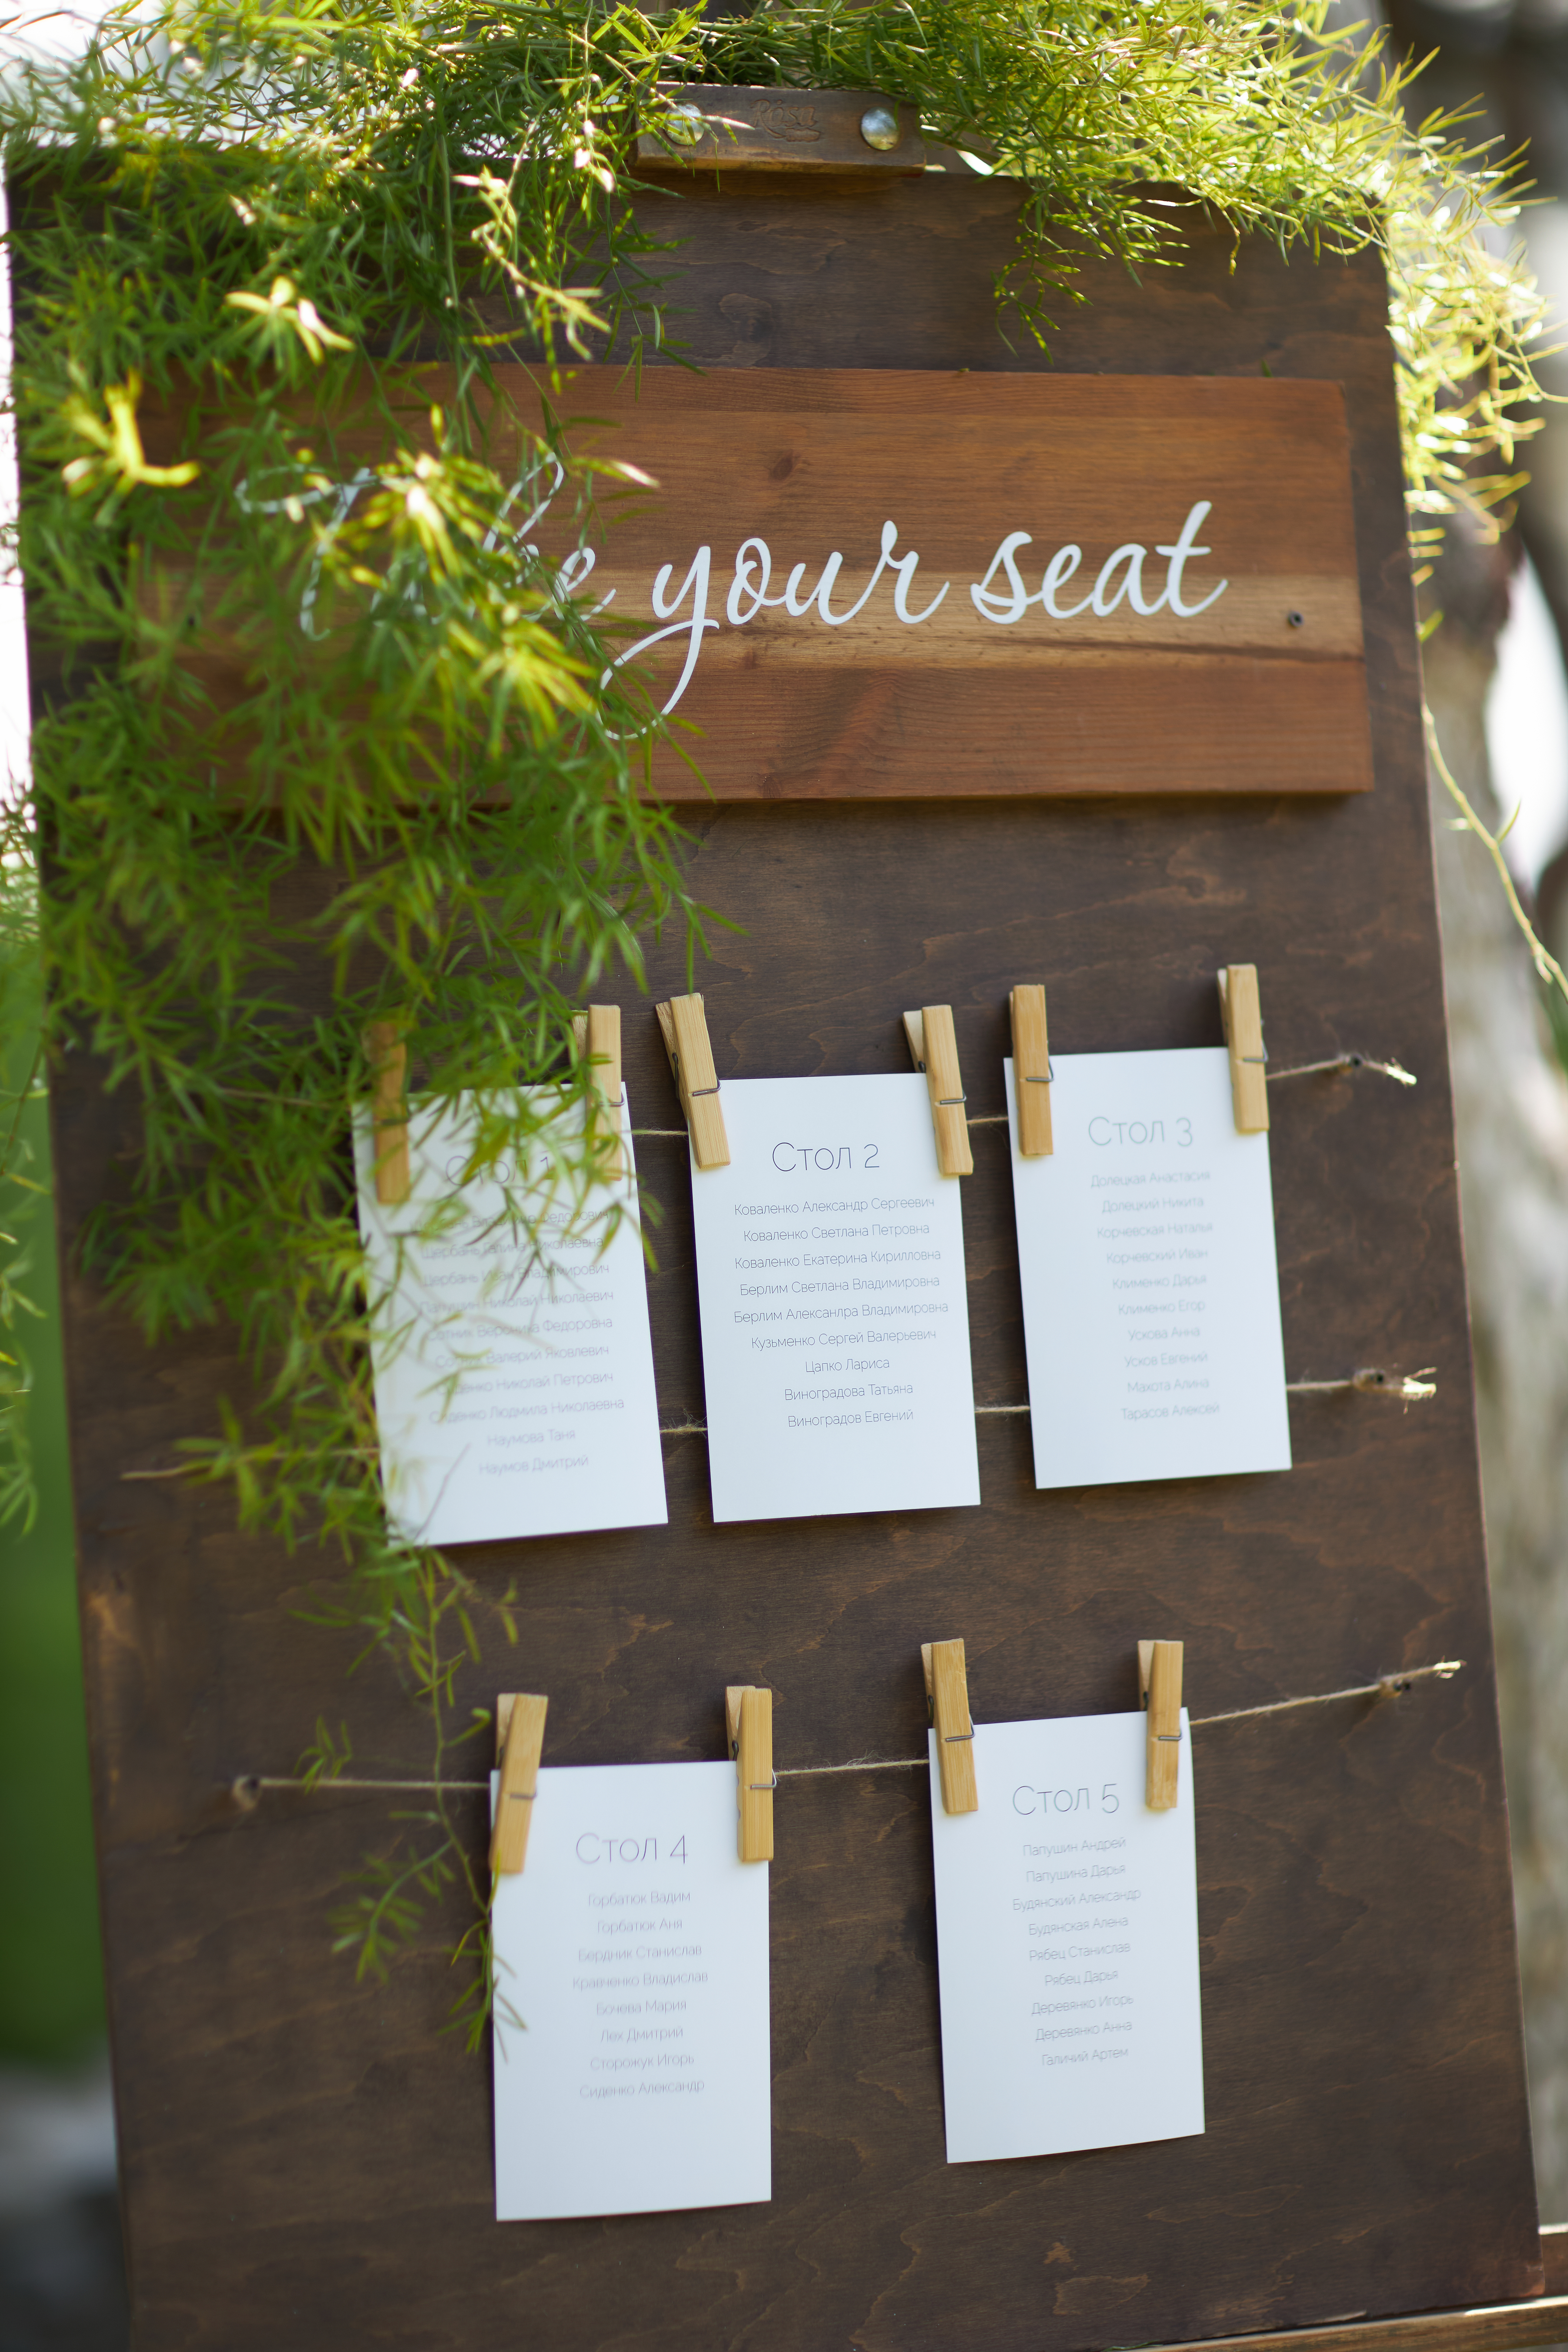 Rosa
Take your seat
Стол 1
Федорович
Щербань Галина Николаевна
Щербань Иван Владимирович
Папушин Николай Николаевич
Сотник Вероника Федоровна
Сотник Валерий Яковлевич
Сиденко Николай Петрович
Сиденко Людмила Николаевна
Наумова Таня
Наумов Дмитрий
Стол 2
Коваленко Александр Сергеевич
Коваленко Светлана Петровна
Коваленко Екатерина Кирилловна
Берлим Светлана Владимировна
Берлим Алексанлра Владимировна
Кузьменко Сергей Валерьевич
Цапко Лариса
Виноградова Татьяна
Виноградов Евгений
Стол 3
Долецкая Анастасия
Долецкий Никита
Корчевская Наталья
Корчевский Иван
Клименко Дарья
Клименко Егор
Ускова Анна
Усков Евгений
Махота Алина
Тарасов Алексей
Стол 4
Горбатюк Вадим
Горбатюк Аня
Бердник Станислав
Кравченко Владислав
Бочева Мария
Лех Дмитрий
Сторожук Игорь
Сиденко Александр
Стол 5
Папушин Андрей
Папушина Дарья
Будянский Александр
Будянская Алена
Рябец Станислав
Рябец Дарья
Деревянко Игорь
Деревянко Анна
Галичий Артем